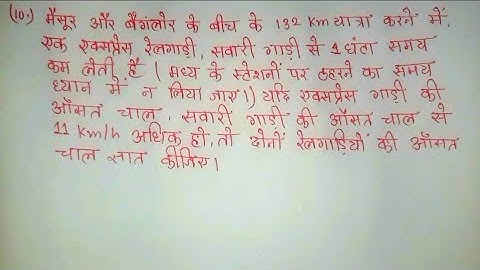 (10.) मैसूर और बैंगलोर के बीच के 132 Km यात्रा करने में,
एक एक्सप्रेस रेलगाड़ी, सवारी गाड़ी से 1 घंटा समय
कम लेती है ( मध्य के स्टेशनों पर ठहरने का समय
ध्यान में न लिया जाए।) यदि एक्सप्रेस गाड़ी की
ऑसत चाल, सवारी गाड़ी की ऑसत चाल से
11 Km/h अधिक हो, तो दोनों रेलगाड़ियों की ऑसत
चाल ज्ञात कीजिए।